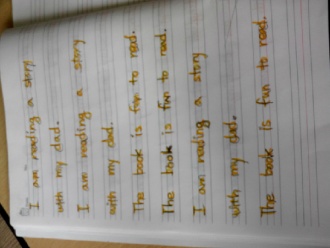 I am reading a story
with my dad.
I am reading a story
with my dad.
The book is fun to read.
The book is fun to read.
I am reading a story
with my dad.
The book is fun to read.